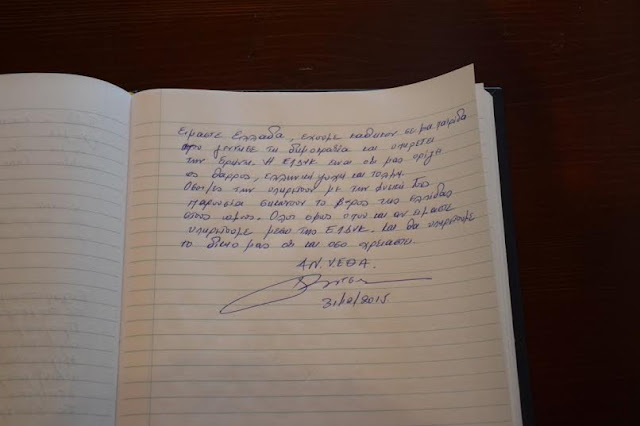 Είμαστε Ελλάδα, έχουμε καθήκον σε μια πατρίδα
που γέννησε τη δημοκρατία και υπηρετεί
την Ειρήνη. Η ΕΛΔΥΚ είναι ότι μας ορίζει
ως θάρρος, ελληνική ψυχή και τόλμη.
Όσοι/ες την υπηρετούν με την δυνατή τους
παρουσία σηκώνουν το βάρος της ελπίδας
στους ώμους. Όλοι όμως όπου και αν είμαστε
υπηρετούμε μέσω της ΕΛΔΥΚ. και θα υπηρετούμε
το δίκιο μας ότι και όσο χρειαστεί.
ΑΝ.ΥΕΘΑ.
31/12/2015